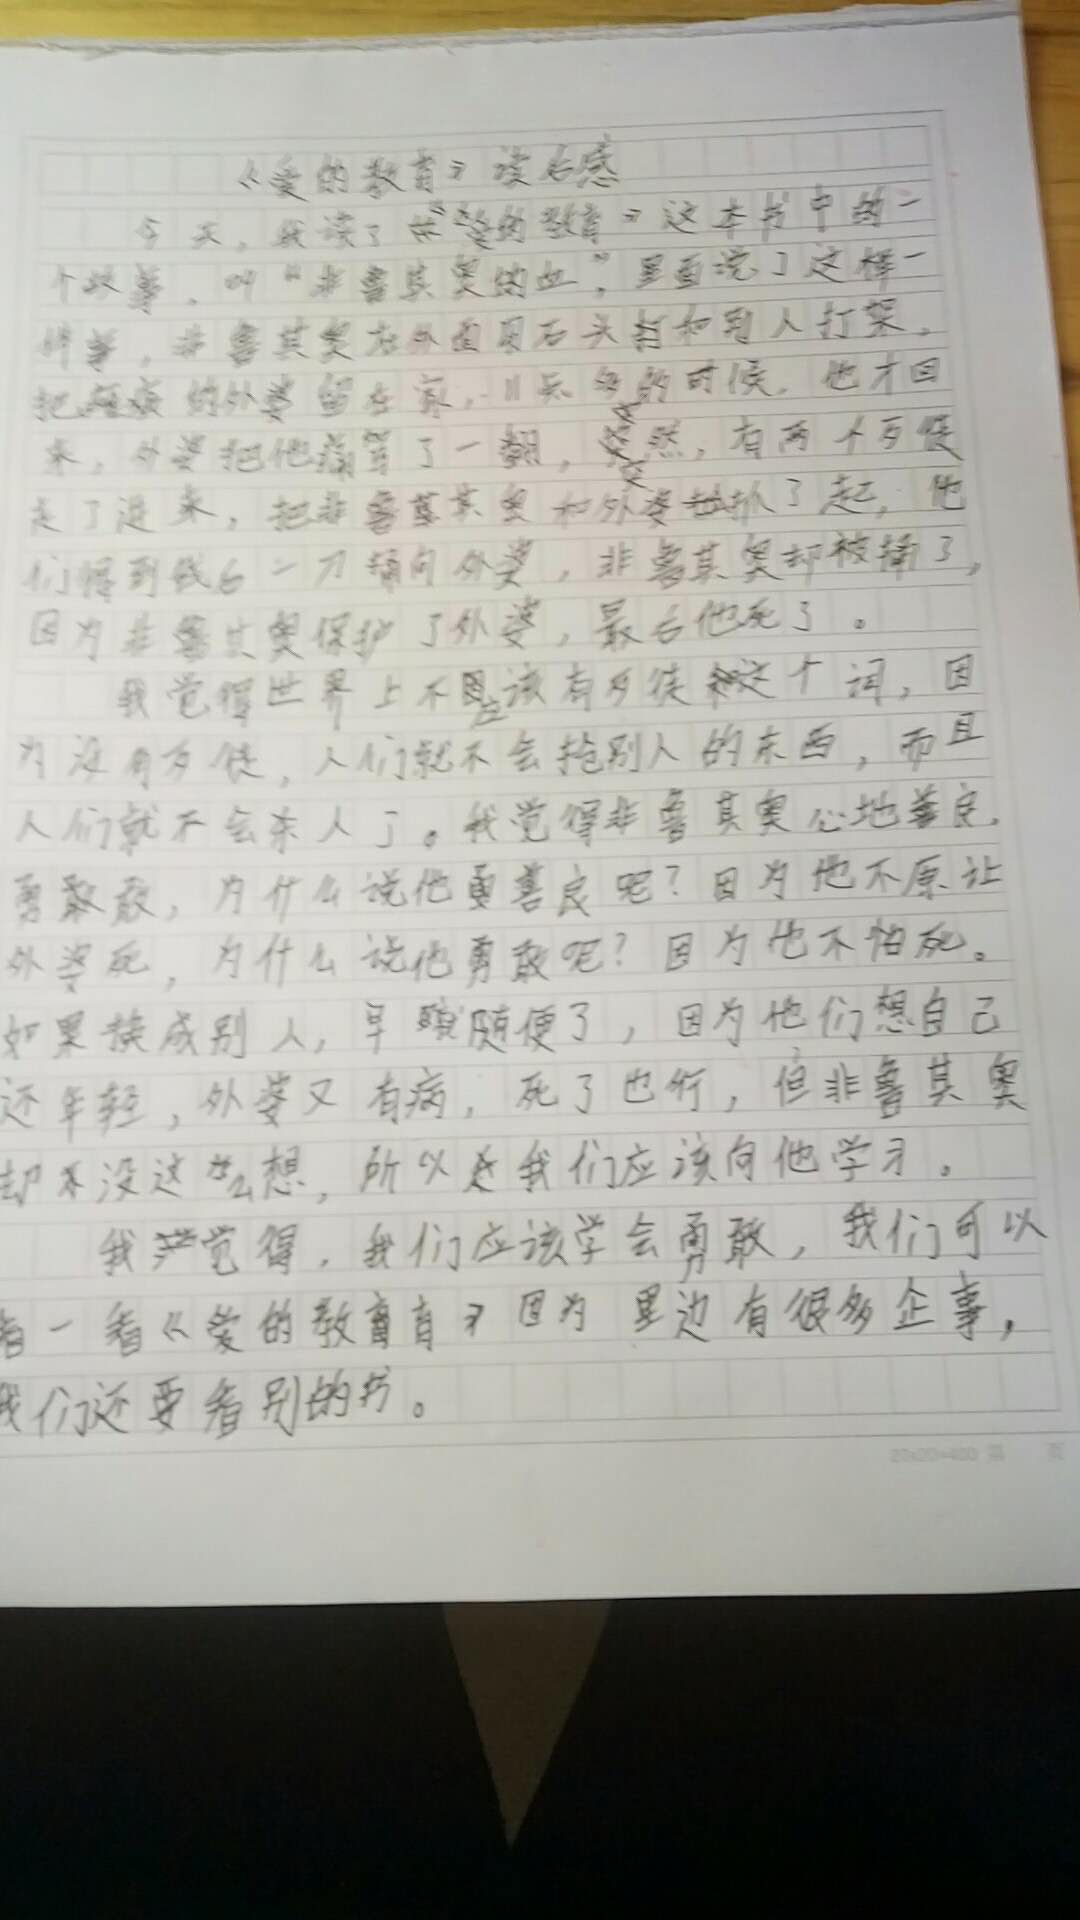 《爱的教育》读后感
今天，我读了《爱的教育》这本书中的一
个故事，叫“非鲁其奥的血”，里面说了这样一
件事，非鲁其奥在外面用石头打和别人打架，
把 的外婆留在家，11点多的时候，他才回
来，外婆把他痛骂了一翻，突然，有两个歹徒
走了进来，把非鲁其奥和外婆抓了起，他
们得到钱后一刀捅向外婆，非鲁其奥却被捅了，
因为非鲁其奥保护了外婆，最后他死了。
我觉得世界上不应该有歹徒这个词，因
为没有歹徒，人们就不会抢别人的东西，而且
人们就不会杀人了。我觉得非鲁其奥心地善良，
勇敢，为什么说他善良呢？因为他不原让
外婆死，为什么说他勇敢呢？因为他不怕死。
如果换成别人，早随便了，因为他们想自己
还年轻，外婆又有病，死了也行，但非鲁其奥
却没这么想，所以我们应该向他学习。
我觉得，我们应该学会勇敢，我们可以
看一看《爱的教育》因为里边有很多 事，
我们还要看别的书。
20×20=400 第 页